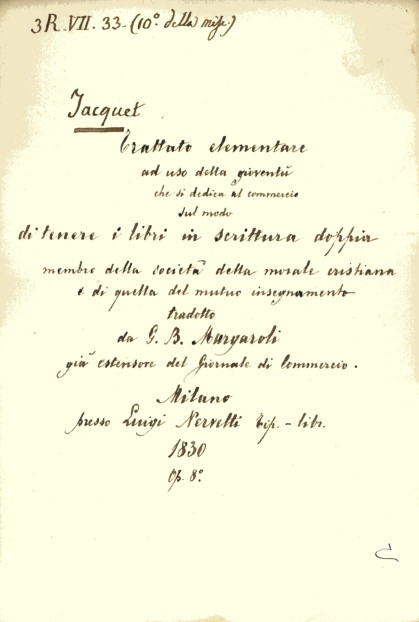 3R.VII.33-(10º della misc.)
Jacquet
Trattato elementare
ad uso della gioventù
che si dedica al commercio
sul modo
di tenere i libri in scrittura doppia
membro della società della morale cristiana
e di quella del mutuo insegnamento
tradotto
da G. B. Margaroli
già estensore del Giornale di Commercio.
Milano
presso Luigi Nervetti tip.-libr.
1830
Op. 8º